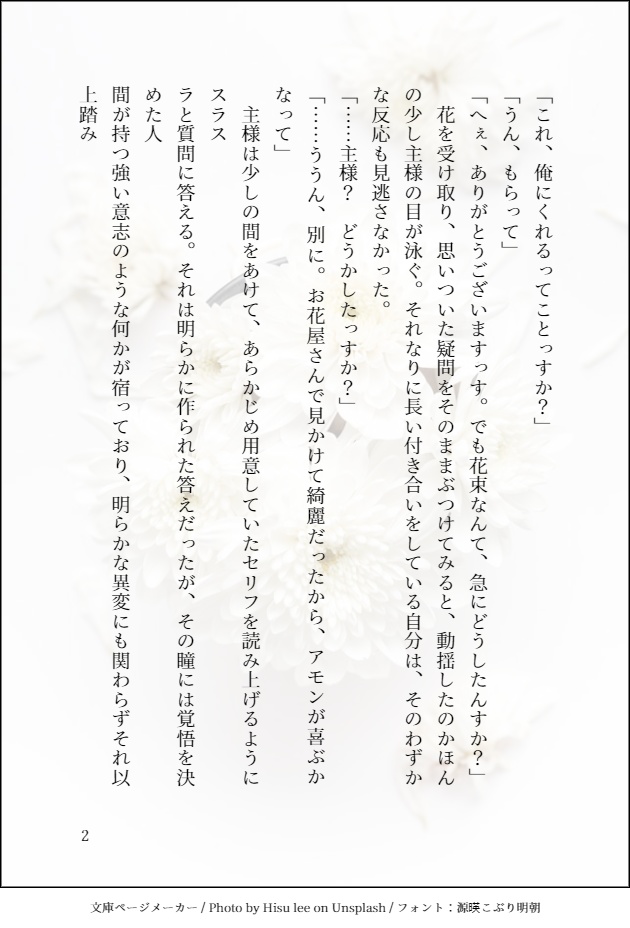 「これ、俺にくれるってことっすか？」
「うん、もらって」
「へぇ、ありがとうございますっす。でも花束なんて、急にどうしたんすか？」
　花を受け取り、思いついた疑問をそのままぶつけてみると、動揺したのかほん
の少し主様の目が泳ぐ。それなりに長い付き合いをしている自分は、そのわずか
な反応も見逃さなかった。
「……主様？　どうかしたっすか？」
「……ううん、別に。お花屋さんで見かけて綺麗だったから、アモンが喜ぶか
なって」
　主様は少しの間をあけて、あらかじめ用意していたセリフを読み上げるように
スラス
ラと質問に答える。それは明らかに作られた答えだったが、その瞳には覚悟を決
めた人
間が持つ強い意志のような何かが宿っており、明らかな異変にも関わらずそれ以
上踏み
2
文庫ページメーカー / Photo by Hisu lee on Unsplash / フォント：源暎こぶり明朝